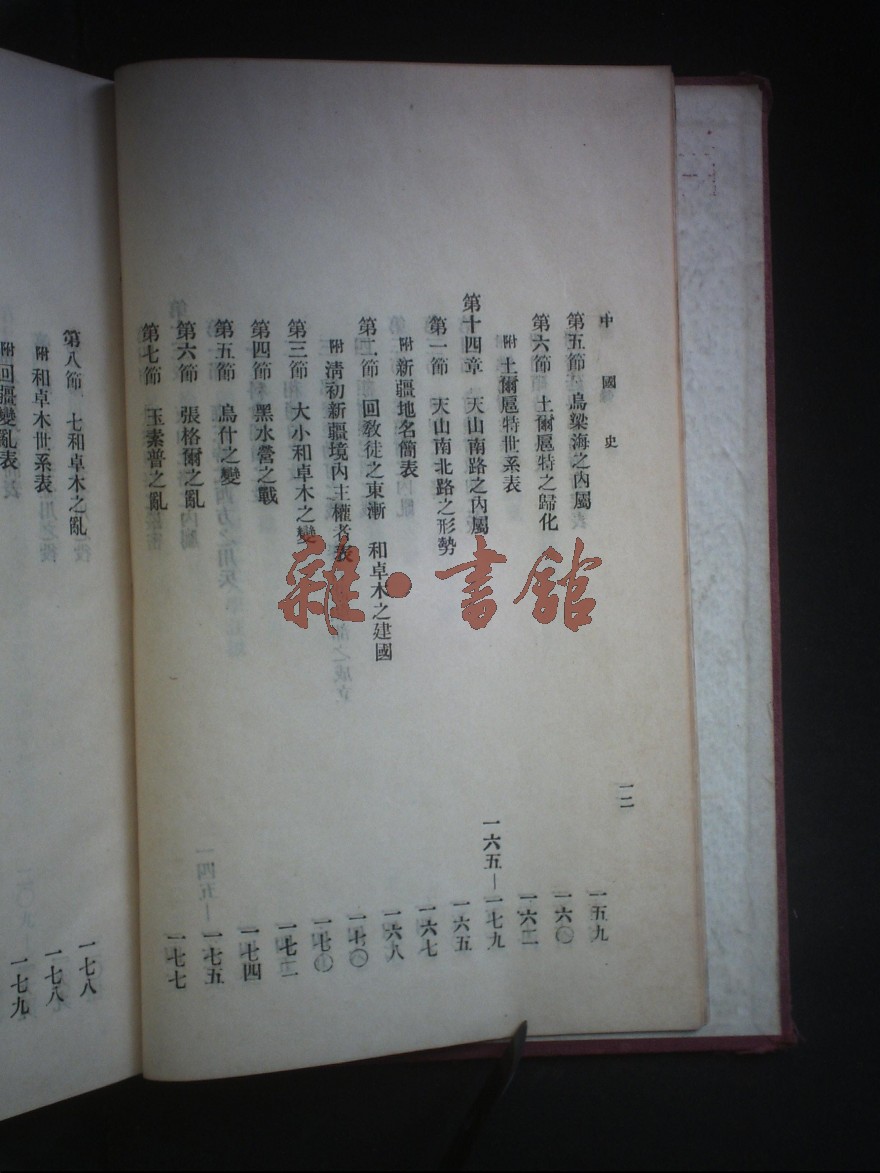 中國史 一二
第五節 烏梁海之內屬 一五九
第六節 土爾扈特之歸化 一六〇
附 土爾扈特世系表 一六二
第十四章 天山南路之內屬 一六五—一七九
第一節 天山南北路之形勢 一六五
附 新疆地名簡表 一六七
第二節 回教徒之東漸 和卓木之建國 一六八
附 清初新疆境內主權者表 一七〇
第三節 大小和卓木之變 一七〇
第四節 黑水營之戰 一七二
第五節 烏什之變 一七四
第六節 張格爾之亂 一七五
第七節 玉素普之亂 一七七
第八節 七和卓木之亂 一七八
附 和卓木世系表 一七八
附 回疆變亂表 一七九
雜·書館